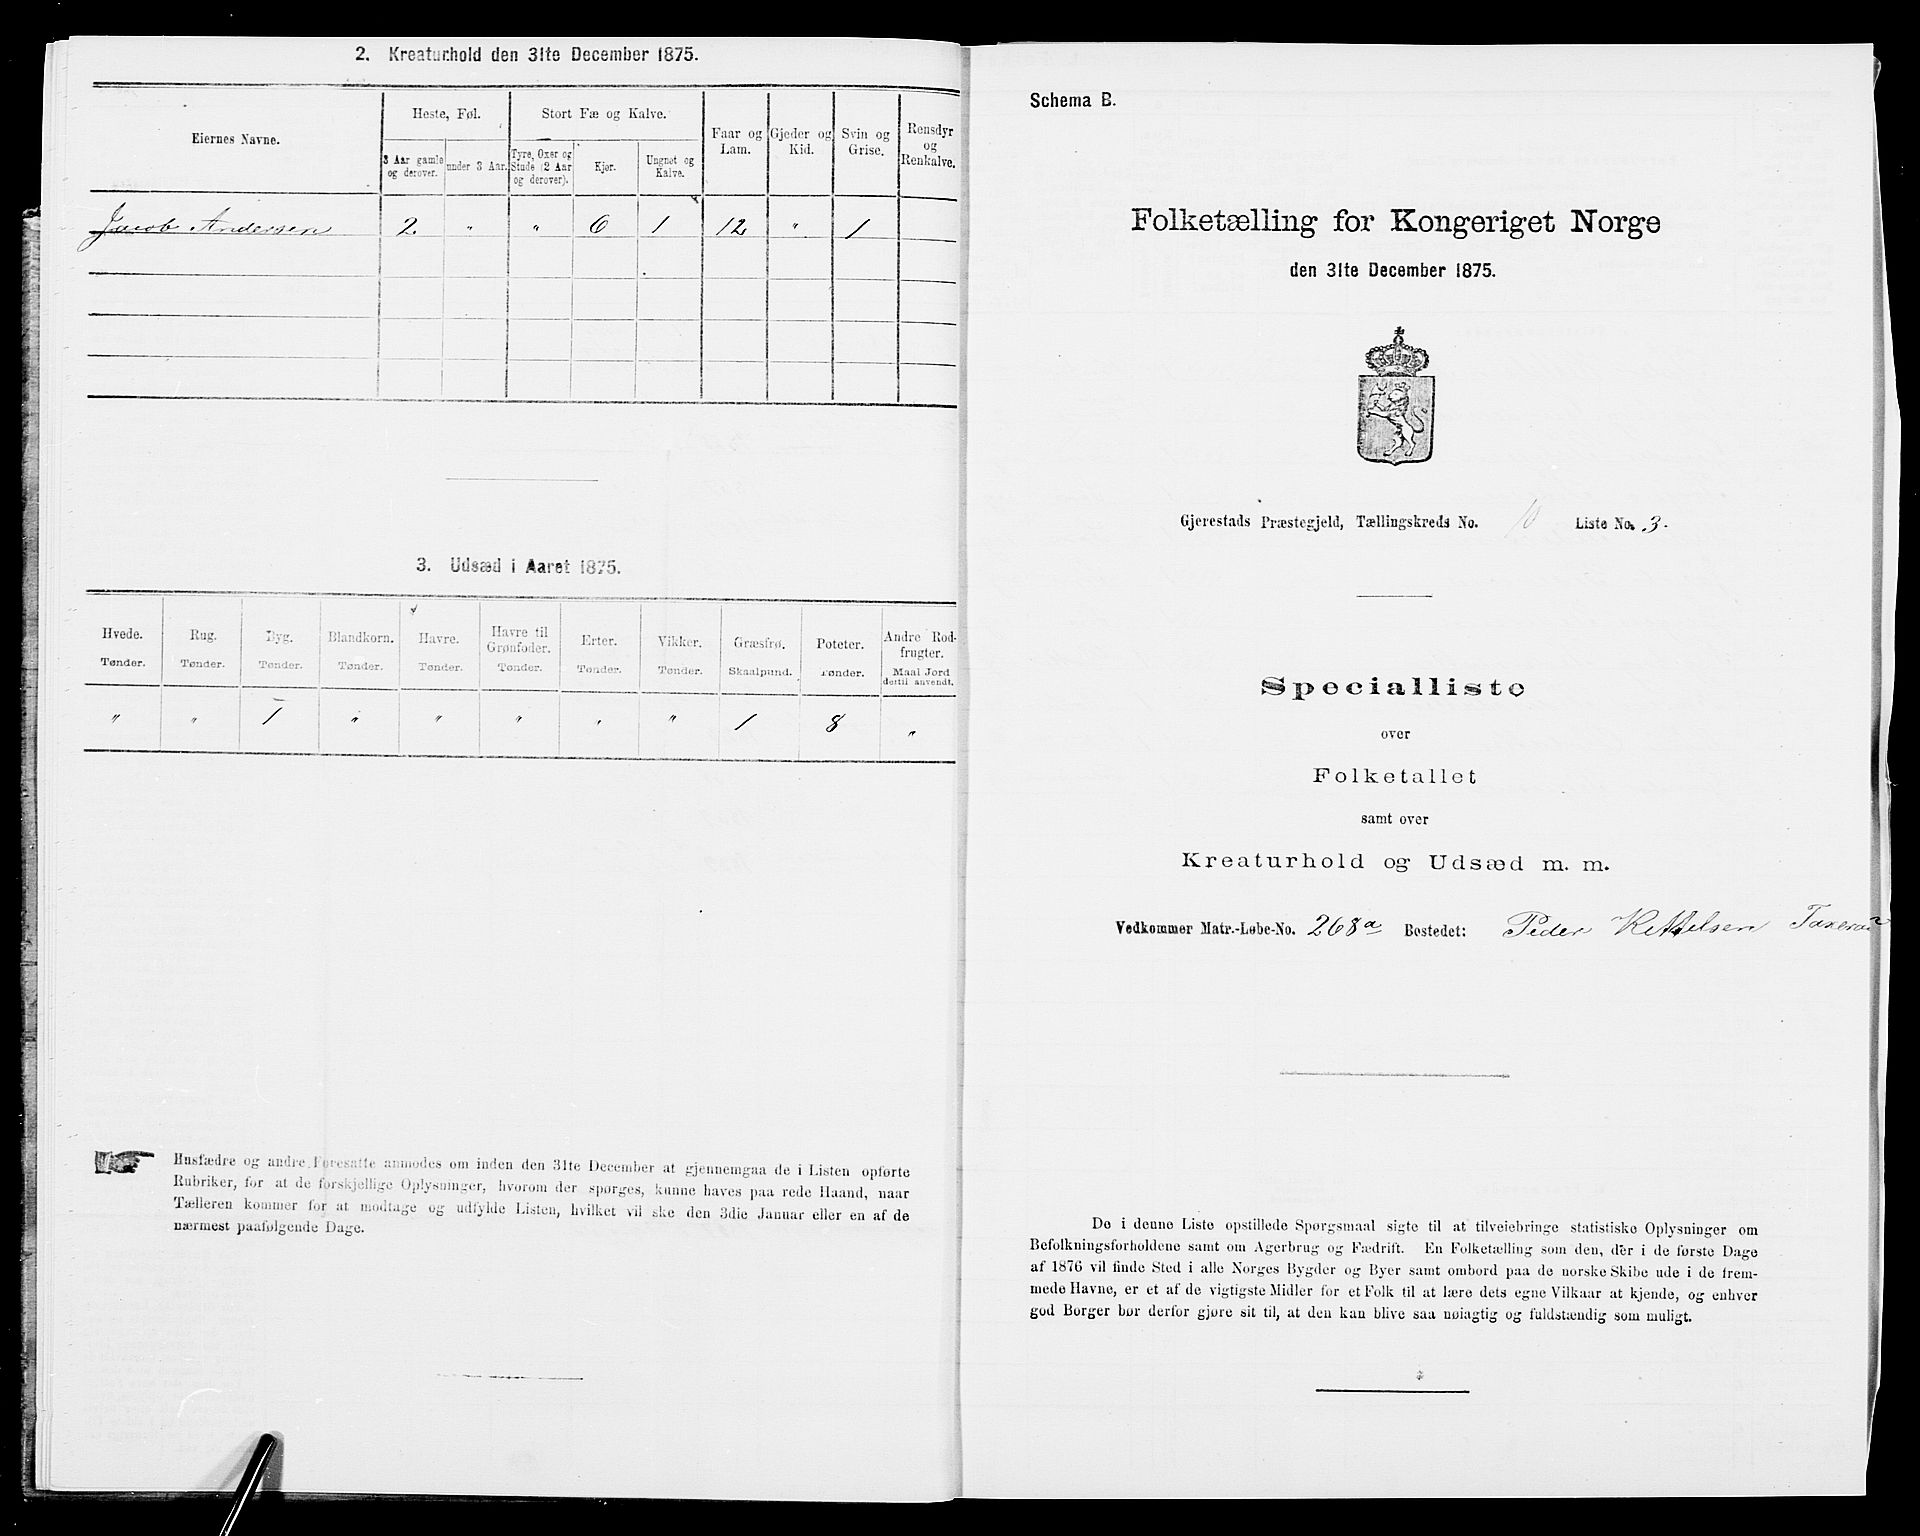 2. Kreaturhold den 31te December 1875.
Eiernes Navne.
Heste, Føl.
Stort Fæ og Kalve.
Faar og
Lam.
Gjeder og
Kid.
Svin og
Grise.
Rensdyr
og
Renkalve.
3 Aar gamle
og derover.
under 3 Aar.
Tyre, Oxer og
Stude (2 Aar
og derover).
Kjør.
Ungnøt og
Kalve.
Jacob Andersen 2 " " 6 1 12 " 1
3. Udsæd i Aaret 1875.
Hvede. Rug. Byg. Blandkorn. Havre. Havre til Grønfoder. Erter. Vikker. Græsfrø. Poteter. Andre Rodfrugter.
Tønder. Tønder. Tønder. Tønder. Tønder. Tønder. Tønder. Tønder. Skaalpund. Tønder. Maal Jord dertil anvendt.
" " 1 " " " " " 1 8 "
Husfædre og andre Foresatte anmodes om inden den 31te December at gjennemgaa de i Listen opførte
Rubriker, for at de forskjellige Oplysninger, hvorom der spørges, kunne haves paa rede Haand, naar
Tælleren kommer for at modtage og udfylde Listen, hvilket vil ske den 3die Januar eller en af de
nærmest paafølgende Dage.
Schema B.
Folketælling for Kongeriget Norge
den 31te December 1875.
Gjerestads Præstegjeld, Tællingskreds No. 10 Liste No. 3.
Specialliste
over
Folketallet
samt over
Kreaturhold og Udsæd m. m.
Vedkommer Matr.-Løbe-No. 268a Bostedet: Peder Kettelsen
De i denne Liste opstillede Spørgsmaal sigte til at tilveiebringe statistiske Oplysninger om
Befolkningsforholdene samt om Agerbrug og Fædrift. En Folketælling som den, der i de første Dage
af 1876 vil finde Sted i alle Norges Bygder og Byer samt ombord paa de norske Skibe ude i de frem-
mede Havne, er et af de vigtigste Midler for et Folk til at lære dets egne Vilkaar at kjende, og enhver
god Borger bør derfor gjøre sit til, at den kan blive saa nøiagtig og fuldstændig som muligt.